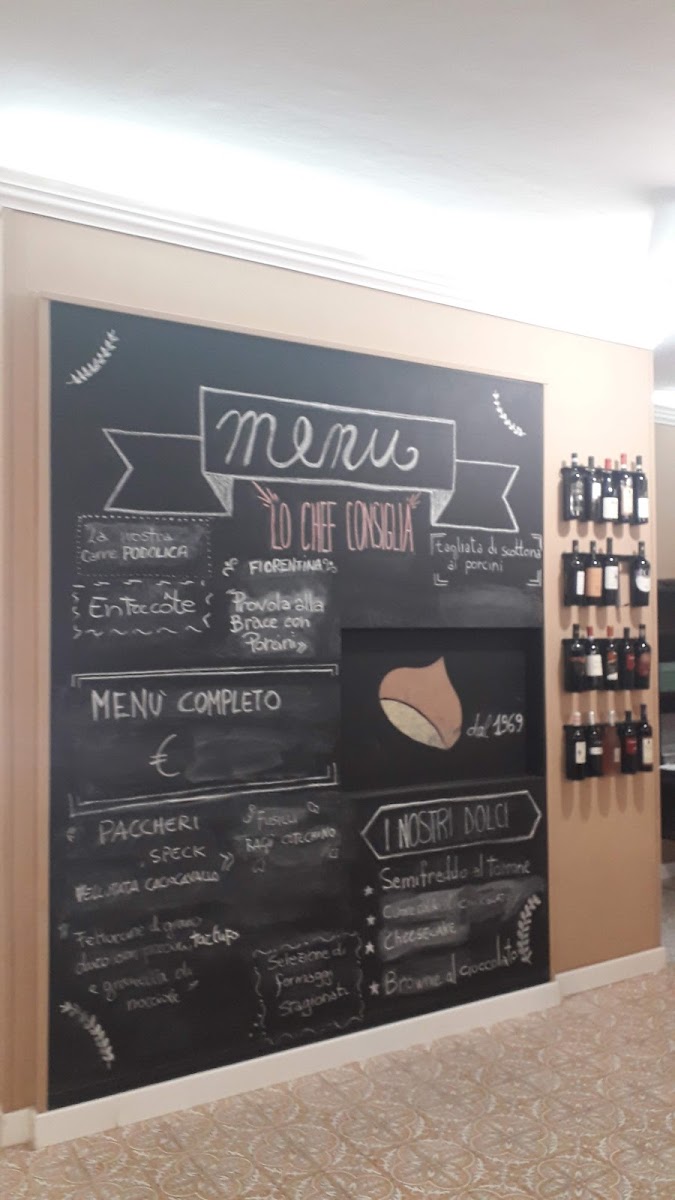 menu
LO CHEF CONSIGLIA
La nostra
carne PODOLICA
Entrecôte
FIORENTINA
Provola alla
Brace con
Porcini
tagliata di scottona
ai porcini
MENÙ COMPLETO
€
dal 1969
PACCHERI
SPECK
VELLUTATA CACIOCAVALLO
FUSILLI
RAGÙ COTECHINO
Fettuccine di grano
duro con porcini, tartufo
e granella di
nocciole
Selezione di
formaggi
stagionati
I NOSTRI DOLCI
Semifreddo al torrone
CHEESECAKE
Browne al cioccolato